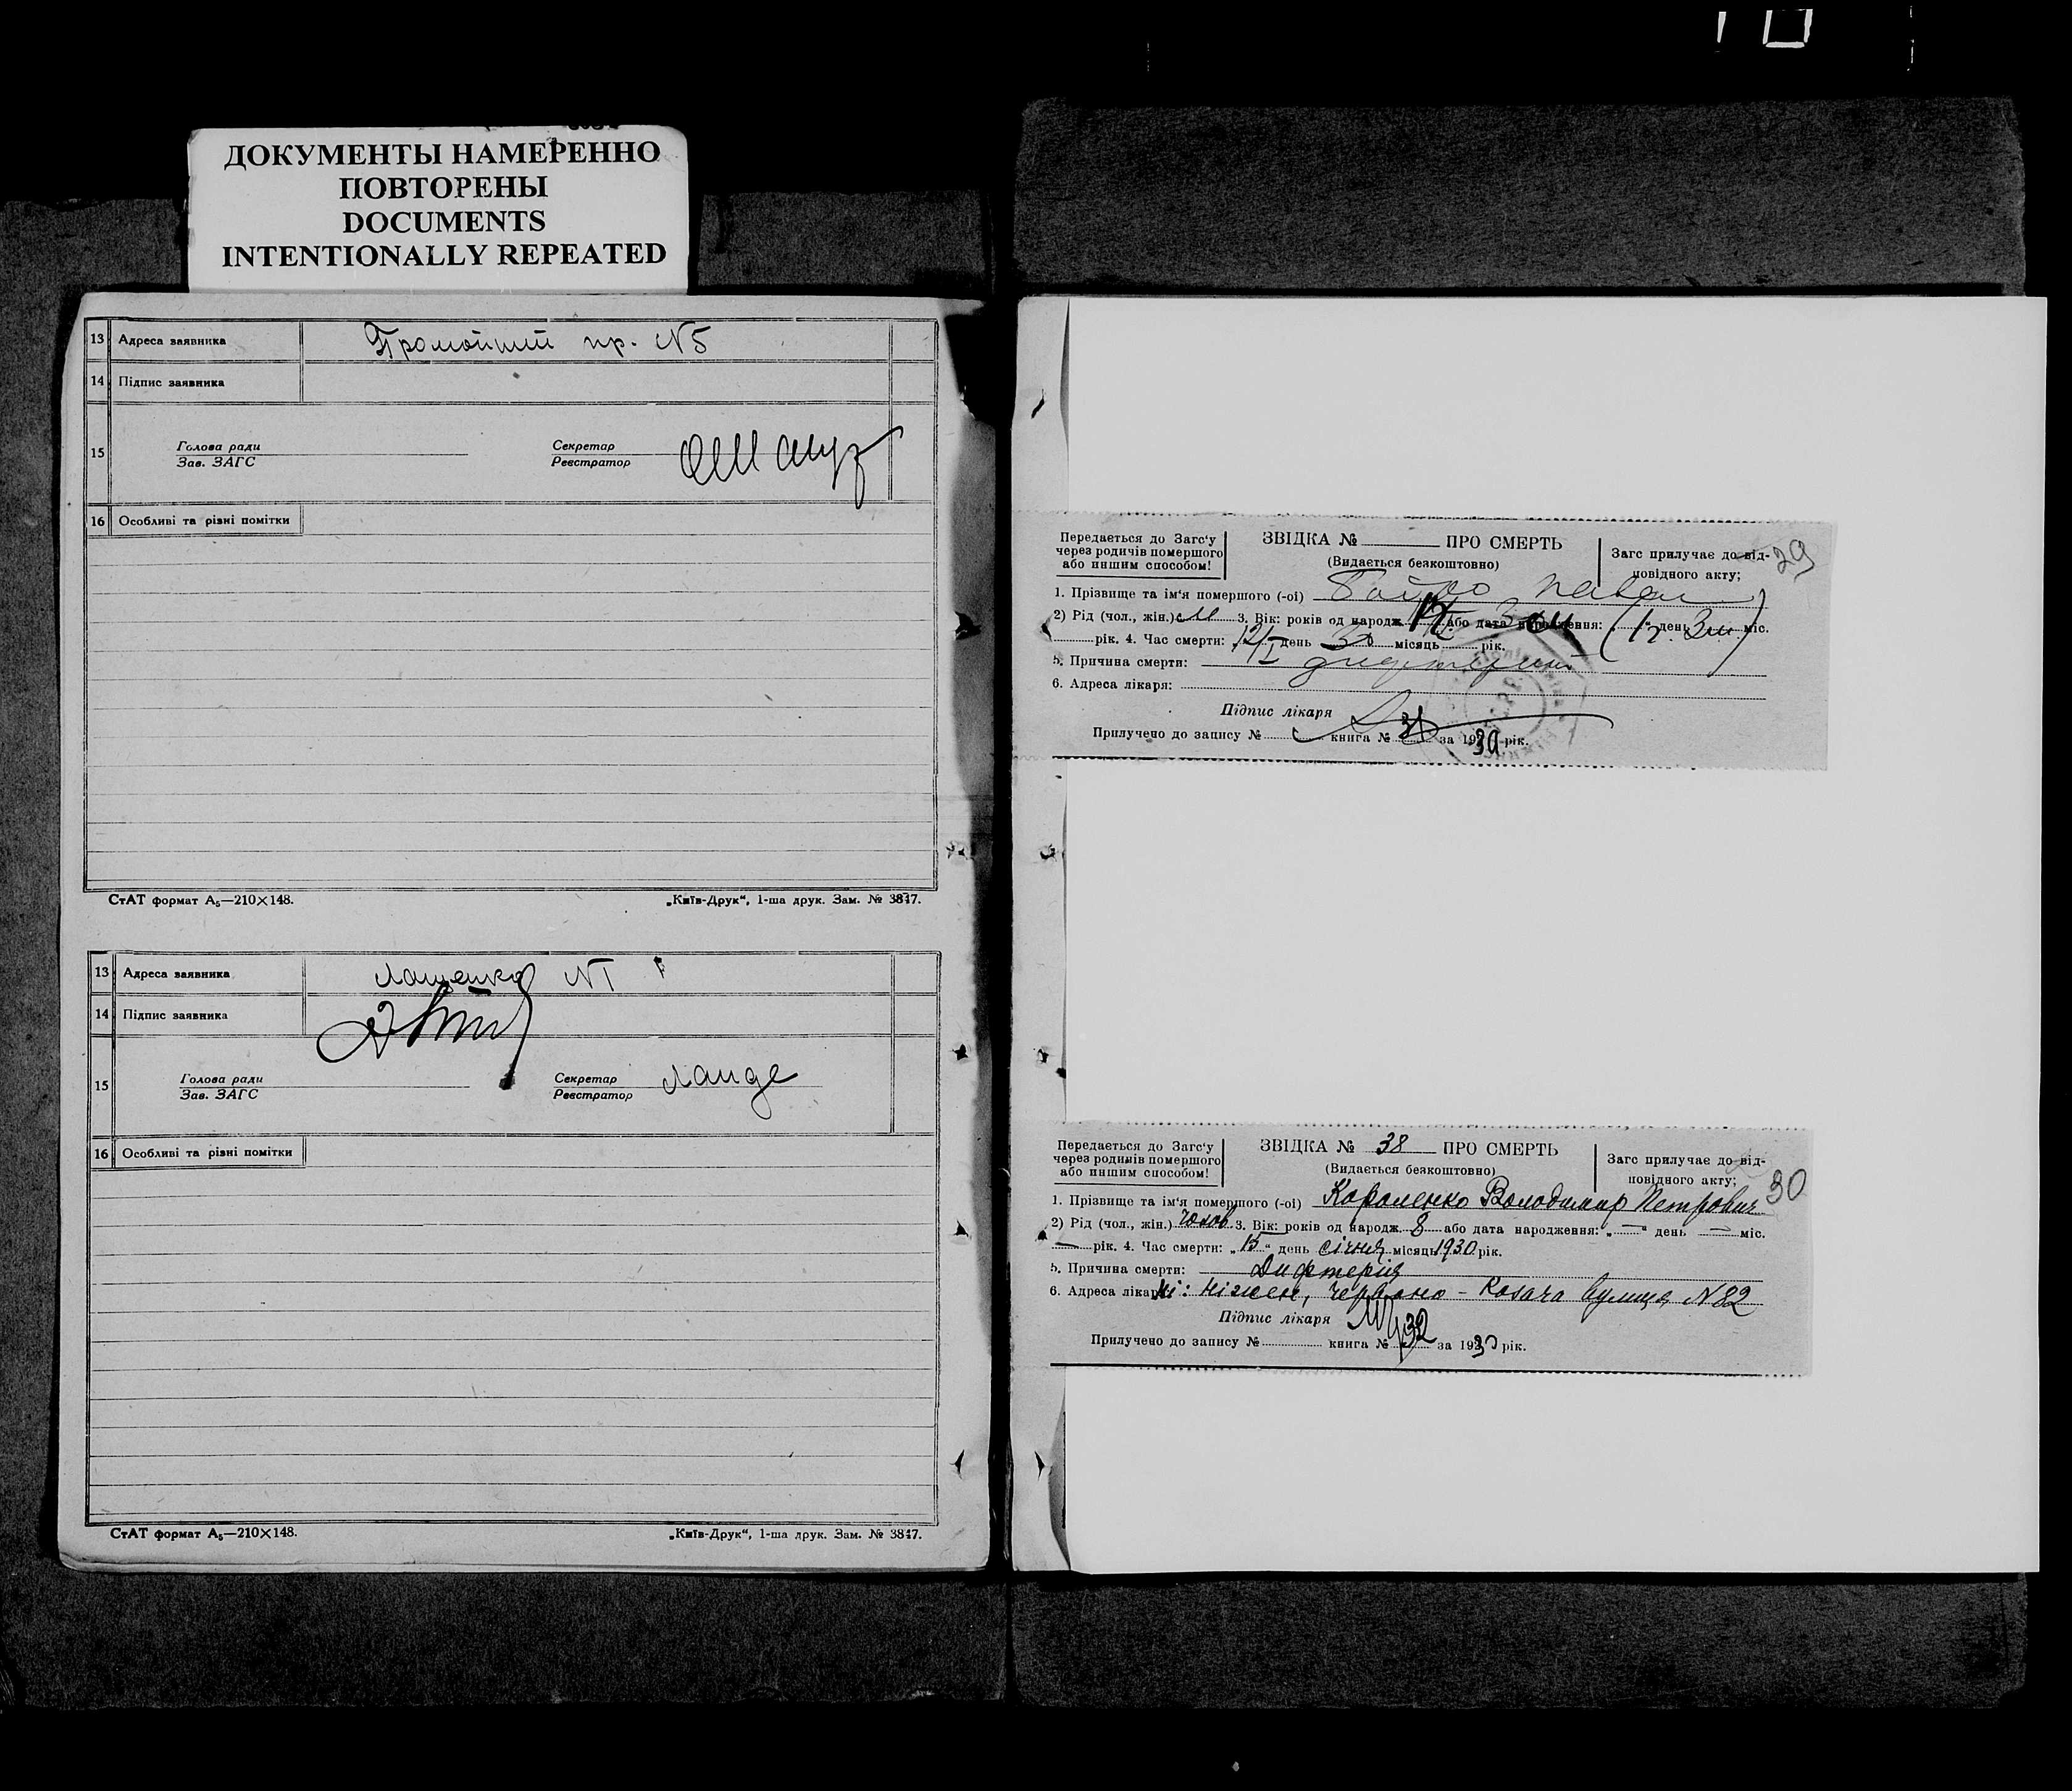 ДОКУМЕНТЫ НАМЕРЕННО
ПОВТОРЕНЫ
DOCUMENTS
INTENTIONALLY REPEATED
13 Адреса заявника пр. №5
14 Підпис заявника
15 Голова ради
Зав. ЗАГС
Секретар
Реєстратор
16 Особливі та різні помітки
СтАТ формат А₅—210×148. „Київ-Друк“, 1-ша друк. Зам. № 3847.
13 Адреса заявника Лащенко №1
14 Підпис заявника
15 Голова ради
Зав. ЗАГС
Секретар
Реєстратор Ланде
16 Особливі та різні помітки
СтАТ формат А₅—210×148. „Київ-Друк“, 1-ша друк. Зам. № 3847.
Передається до Загс'у
через родичів помершого
або иншим способом!
ЗВІДКА № ПРО СМЕРТЬ
(Видається безкоштовно)
Загс прилучає до від-
повідного акту;
29
1. Прізвище та ім'я помершого (-ої) Павел
2) Рід (чол., жін.) м 3. Вік: років од народж. або дата народження: „ “ день міс.
рік. 4. Час смерти: „12/I день 30 місяць рік.
5. Причина смерти:
6. Адреса лікаря:
Підпис лікаря
Прилучено до запису № книга № 31 за 1930 рік.
Передається до Загс'у
через родичів помершого
або иншим способом!
ЗВІДКА № 38 ПРО СМЕРТЬ
(Видається безкоштовно)
Загс прилучає до від-
повідного акту;
30
1. Прізвище та ім'я помершого (-ої) Короленко Володимир Петрович
2) Рід (чол., жін.) чолов. 3. Вік: років од народж. 8 або дата народження: „—“ день — міс.
— рік. 4. Час смерти: „15“ день січня місяць 1930 рік.
5. Причина смерти: Дифтерія
6. Адреса лікарні: Ніжен, Червоно-Козача вулиця №82
Підпис лікаря
Прилучено до запису № книга № 32 за 1930 рік.